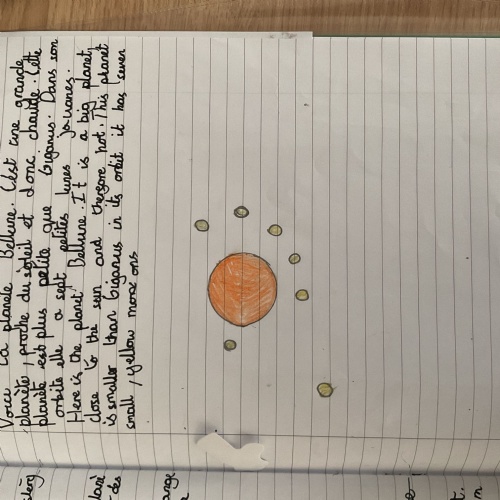 Voici la planète Bellune. C'est une grande
planète, proche du soleil et donc chaude. Cette
planète est plus petite que Giganus. Dans son
orbite elle a sept petites lunes jaunes.
Here is the planet Bellune. It is a big planet,
close to the sun and therefore hot. This planet
is smaller than Giganus in its orbit it has seven
small, yellow moons